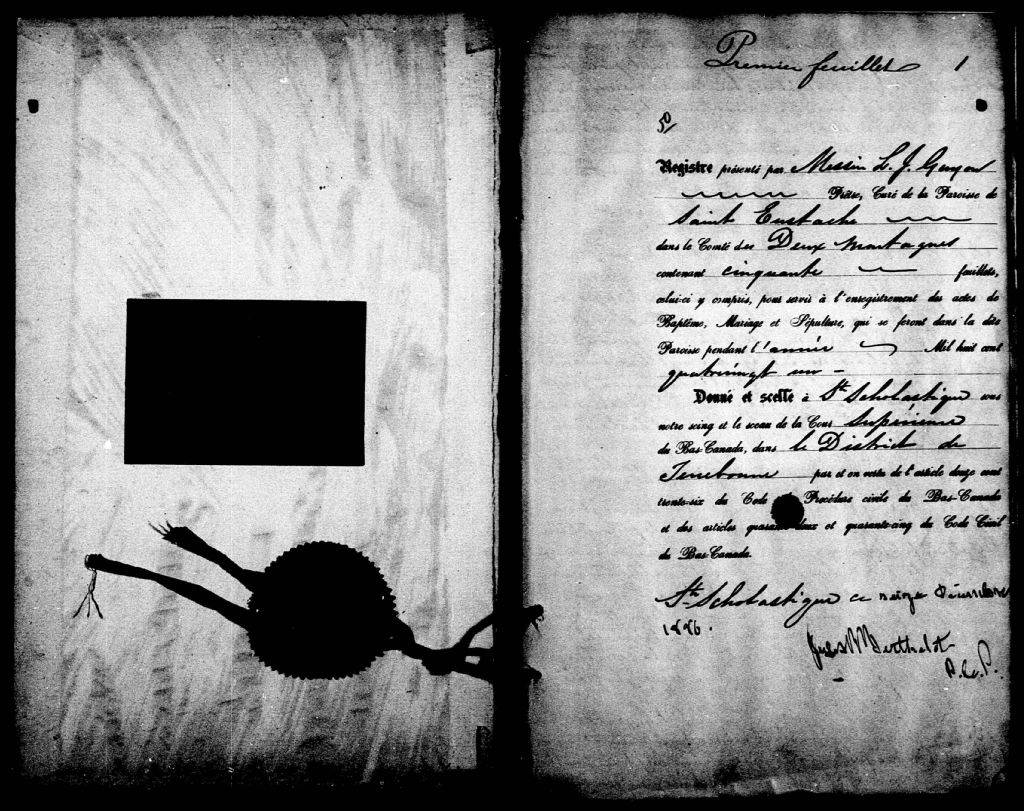 Premier feuillet 1
50/
Registre présenté par Messire L. J. Guyon
Prêtre, Curé de la Paroisse de
Saint Eustache
dans le Comté des Deux Montagnes
contenant cinquante feuillets,
celui-ci y compris, pour servir à l'enregistrement des actes de
Baptême, Mariage et Sépulture, qui se feront dans la dite
Paroisse pendant l'année Mil huit cent
quatrevingt
Donné et scellé à Ste Scholastique sous
notre seing et le sceau de la Cour Supérieure
du Bas-Canada, dans le District de
Terrebonne par et en vertu de l'article douze cent
trente-six du Code Procédure civile du Bas-Canada
et des articles quarante-deux et quarante-cinq du Code Civil
du Bas-Canada.
Ste Scholastique ce Décembre
188
Jules Berthelot
P.C.S.